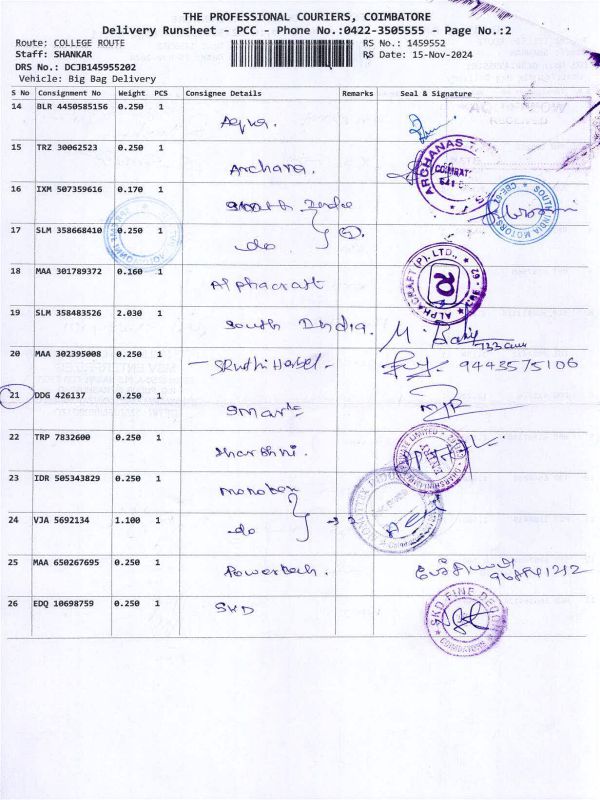 THE PROFESSIONAL COURIERS, COIMBATORE
Delivery Runsheet - PCC - Phone No.:0422-3505555 - Page No.:2
Route: COLLEGE ROUTE RS No.: 1459552
Staff: SHANKAR RS Date: 15-Nov-2024
DRS No.: DCJB145955202
Vehicle: Big Bag Delivery
S No Consignment No Weight PCS Consignee Details Remarks Seal & Signature
14 BLR 4450585156 0.250 1
RECEIVED
15 TRZ 30062523 0.250 1 Archana.
ARCHANAS
16 IXM 507359616 0.170 1 South India
SOUTH INDIA MOTORS
17 SLM 358668410 0.250 1 do
18 MAA 301789372 0.160 1 Alphacraft
ALPHACRAFT (P). LTD.,
19 SLM 358483526 2.030 1 South India.
20 MAA 302395008 0.250 1 - SRuthi Herbel - 9443575106
21 DDG 426137 0.250 1 Smart
22 TRP 7832600 0.250 1 Dharshni.
23 IDR 505343829 0.250 1
24 VJA 5692134 1.100 1 do
25 MAA 650267695 0.250 1 Powertech.
26 EDQ 10698759 0.250 1 SKD
SKD FINE DECOR
COIMBATORE